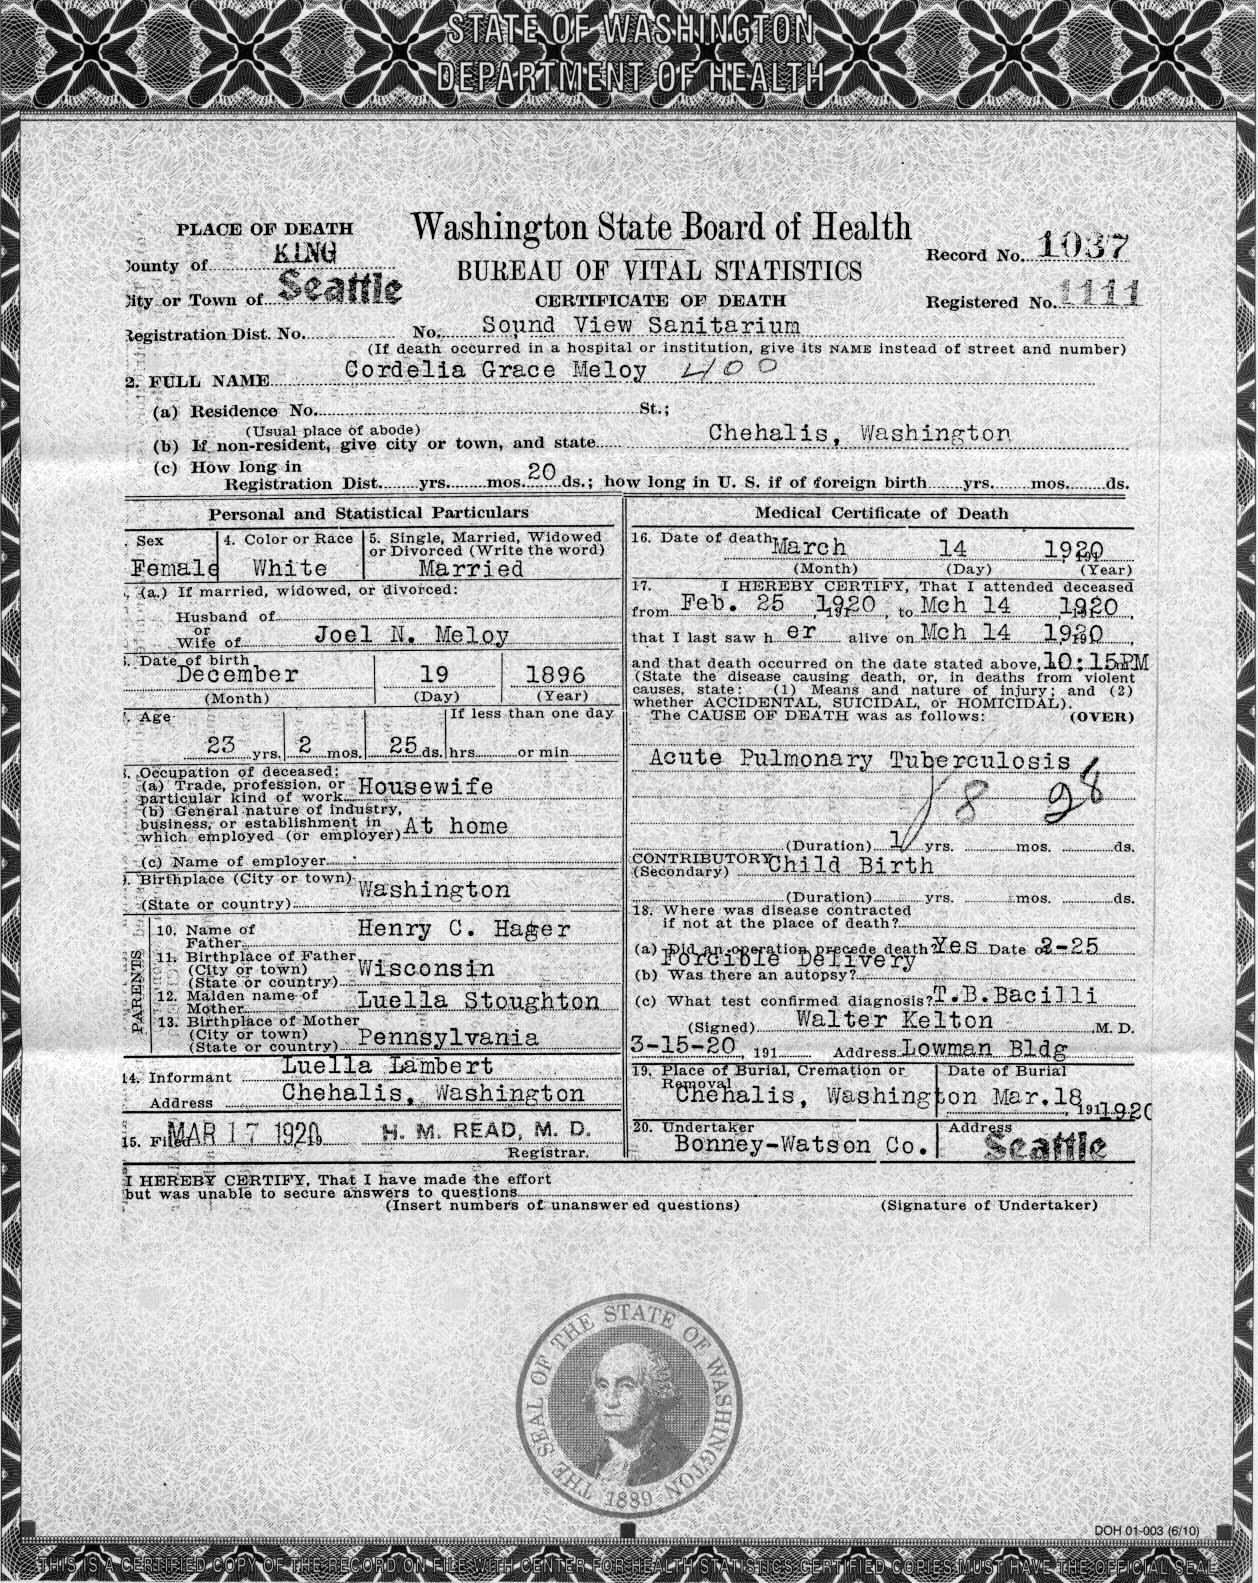 STATE OF WASHINGTON
DEPARTMENT OF HEALTH
PLACE OF DEATH
Washington State Board of Health
County of KING
Record No. 1037
BUREAU OF VITAL STATISTICS
City or Town of Seattle
CERTIFICATE OF DEATH
Registered No. 1111
Registration Dist. No. No. Sound View Sanitarium
(If death occurred in a hospital or institution, give its NAME instead of street and number)
2. FULL NAME Cordelia Grace Meloy 400
(a) Residence No. St.;
(Usual place of abode)
(b) If non-resident, give city or town, and state Chehalis, Washington
(c) How long in
Registration Dist. yrs. mos. 20 ds.; how long in U. S. if of foreign birth yrs. mos. ds.
Personal and Statistical Particulars
. Sex
Female
4. Color or Race
White
5. Single, Married, Widowed
or Divorced (Write the word)
Married
(a.) If married, widowed, or divorced:
Husband of
or
Wife of Joel N. Meloy
. Date of birth
December 19 1896
(Month) (Day) (Year)
. Age
If less than one day
23 yrs. 2 mos. 25 ds. hrs. or min
. Occupation of deceased:
(a) Trade, profession, or
particular kind of work Housewife
(b) General nature of industry,
business, or establishment in
which employed (or employer) At home
(c) Name of employer
. Birthplace (City or town)
Washington
(State or country)
PARENTS
10. Name of
Father Henry C. Hager
11. Birthplace of Father
(City or town) Wisconsin
(State or country)
12. Maiden name of
Mother Luella Stoughton
13. Birthplace of Mother
(City or town)
(State or country) Pennsylvania
14. Informant Luella Lambert
Address Chehalis, Washington
15. Filed MAR 17 1920 H. M. READ, M. D.
Registrar.
Medical Certificate of Death
16. Date of death March 14 1920
(Month) (Day) (Year)
17. I HEREBY CERTIFY, That I attended deceased
from Feb. 25 1920, to Mch 14 1920,
that I last saw her alive on Mch 14 1920,
and that death occurred on the date stated above, 10:15PM
(State the disease causing death, or, in deaths from violent
causes, state: (1) Means and nature of injury; and (2)
whether ACCIDENTAL, SUICIDAL, or HOMICIDAL).
The CAUSE OF DEATH was as follows: (OVER)
Acute Pulmonary Tuberculosis
8 28
(Duration) 1 yrs. mos. ds.
CONTRIBUTORY Child Birth
(Secondary)
(Duration) yrs. mos. ds.
18. Where was disease contracted
if not at the place of death?
(a) Did an operation precede death? Yes Date of 2-25
Forcible Delivery
(b) Was there an autopsy?
(c) What test confirmed diagnosis? T.B.Bacilli
(Signed) Walter Kelton , M. D.
3-15-20, 191 Address Lowman Bldg
19. Place of Burial, Cremation or
Removal
Chehalis, Washington
Date of Burial
Mar.18, 191 1920
20. Undertaker
Bonney-Watson Co.
Address
Seattle
I HEREBY CERTIFY, That I have made the effort
but was unable to secure answers to questions
(Insert numbers of unanswered questions) (Signature of Undertaker)
THE SEAL OF THE STATE OF WASHINGTON
1889
DOH 01-003 (6/10)
THIS IS A CERTIFIED COPY OF THE RECORD ON FILE WITH CENTER FOR HEALTH STATISTICS CERTIFIED COPIES MUST HAVE THE OFFICIAL SEAL